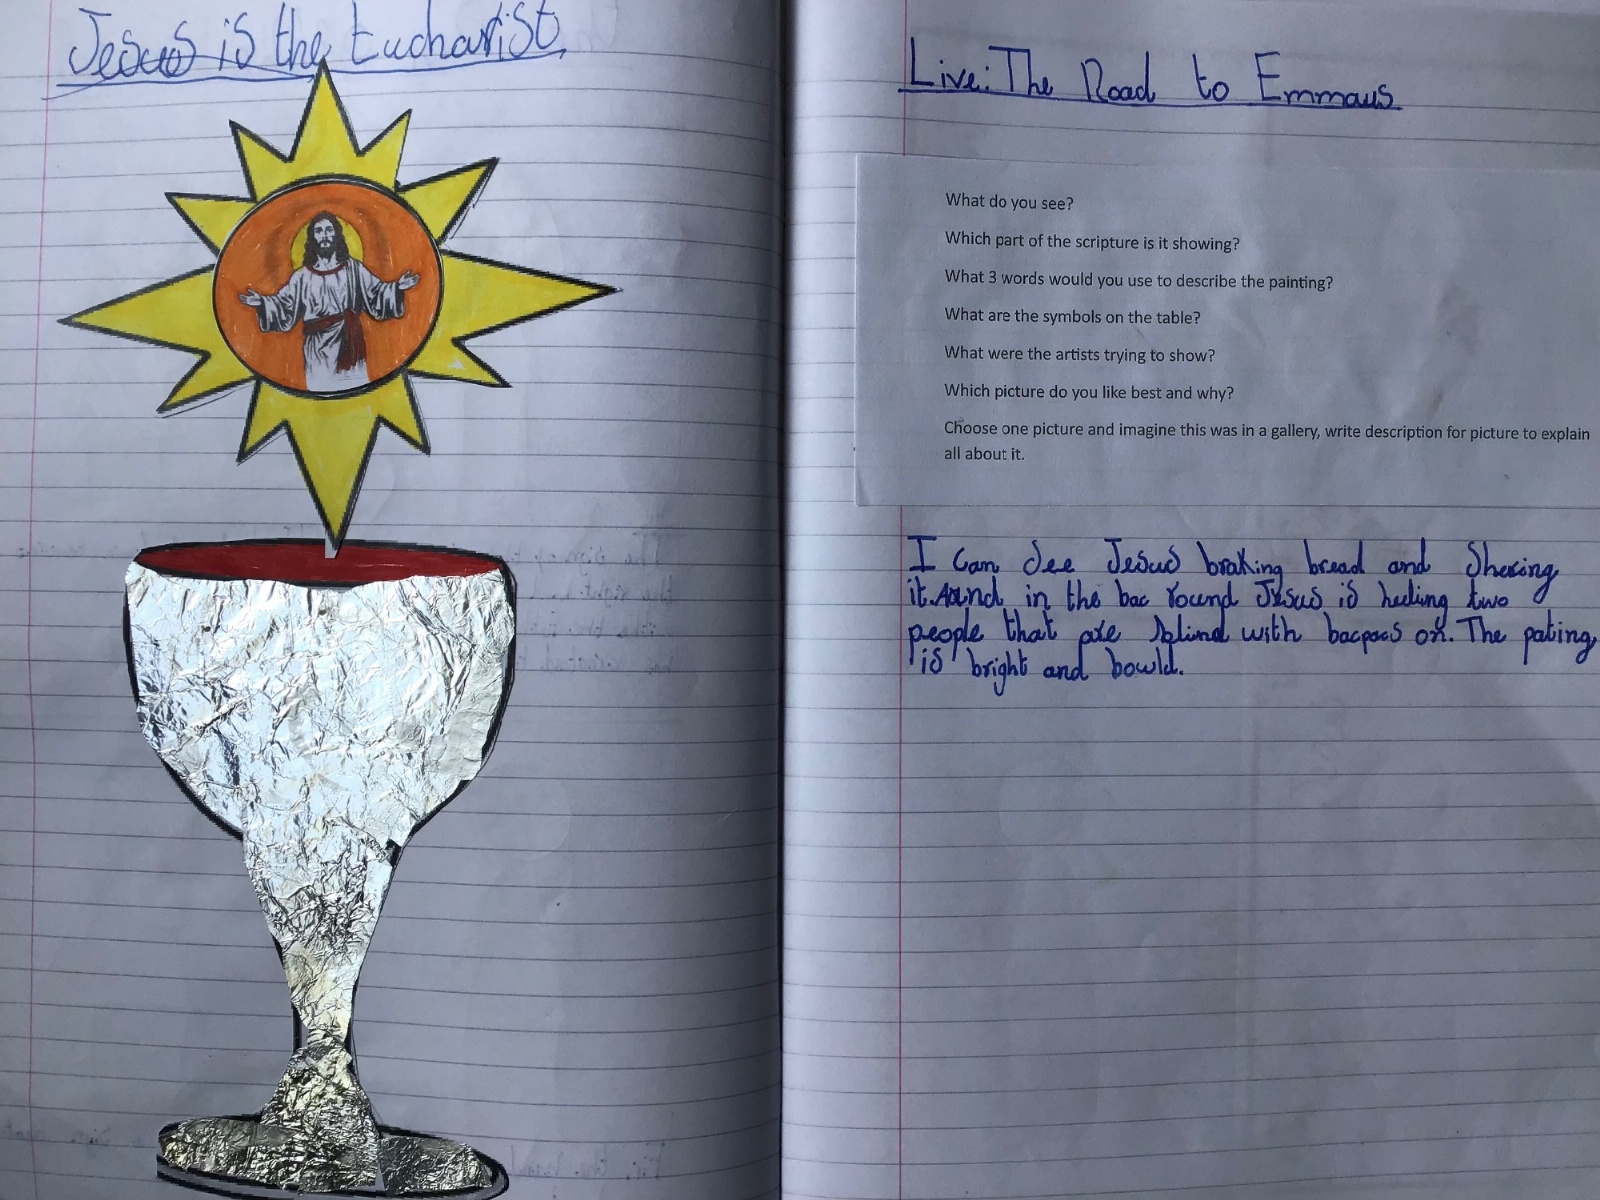 Jesus is the Eucharist
Live: The Road to Emmaus
What do you see?
Which part of the scripture is it showing?
What 3 words would you use to describe the painting?
What are the symbols on the table?
What were the artists trying to show?
Which picture do you like best and why?
Choose one picture and imagine this was in a gallery, write description for picture to explain
all about it.
I Can See Jesus braking bread and Shering
it. And in the bac round Jesus is heeling two
people that are blind with bacpacs on. The pating
is bright and bowld.